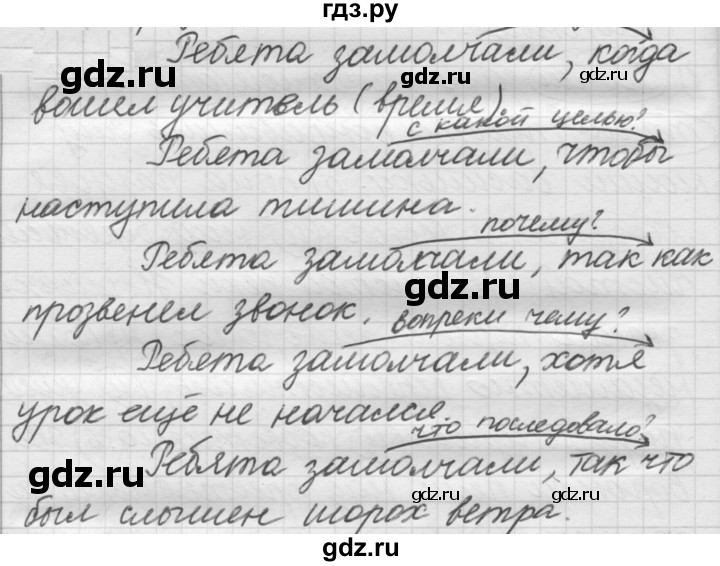 гдз.ру
Ребята замолчали, когда
gdz.ru
gdz.ru
вошел учитель (время).
gdz.ru
с какой целью?
Ребята замолчали, чтобы
наступила тишина.
почему?
Ребята замолчали, так как
gdz.ru
прозвенел звонок.
вопреки чему?
Ребята замолчали, хотя
урок ещё не начался.
что последовало?
Ребята замолчали, так что
gdz.ru
gdz.ru
gdz.ru
был слышен шорох ветра.
gdz.ru